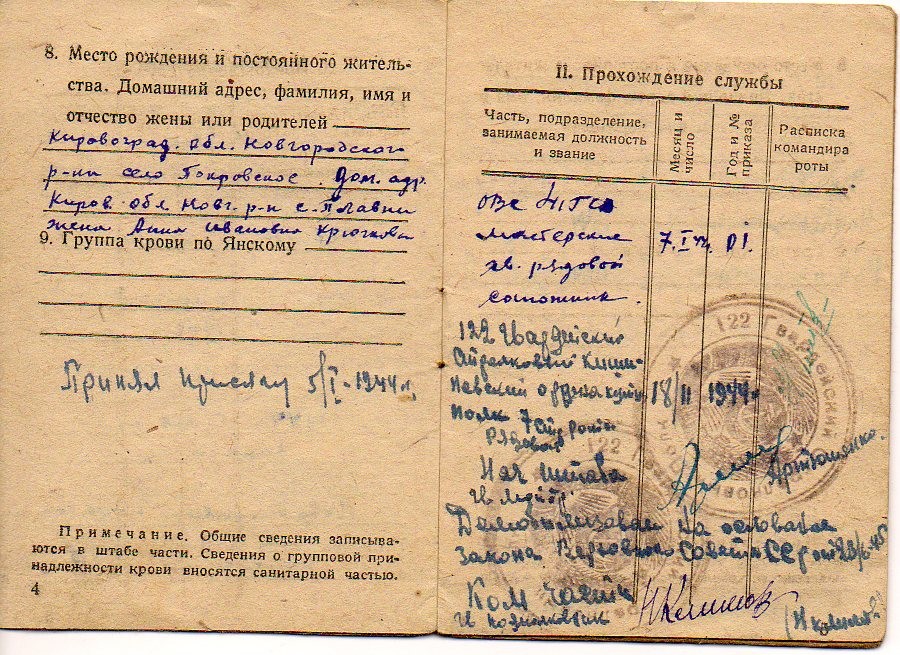 8. Место рождения и постоянного житель-
ства. Домашний адрес, фамилия, имя и
отчество жены или родителей
Кировоград. обл. Новгородского
р-на село Покровское. Дом. адр.
Киров. обл. Новг. р-н с. Плавни
жена Анна Ивановна Крючкова
9. Группа крови по Янскому
Принял присягу 5/I-1944 г.
Примечание. Общие сведения записыва-
ются в штабе части. Сведения о групповой при-
надлежности крови вносятся санитарной частью.
4
II. Прохождение службы
Часть, подразделение,
занимаемая должность
и звание
Месяц и
число
Год и №
приказа
Расписка
командира
роты
мастерские 7.I
гв. рядовой
сапожник.
122 Гвардейский
Стрелковый Киши-
невский
полк 7 стр рота 18/II 1944 г
рядовой
Нач штаба
гв. майор Артюшенко.
Демобилизован на основании
закона Верховного Совета СССР от 23/6-45
Ком части
гв подполковник
122 Гвардейский
122